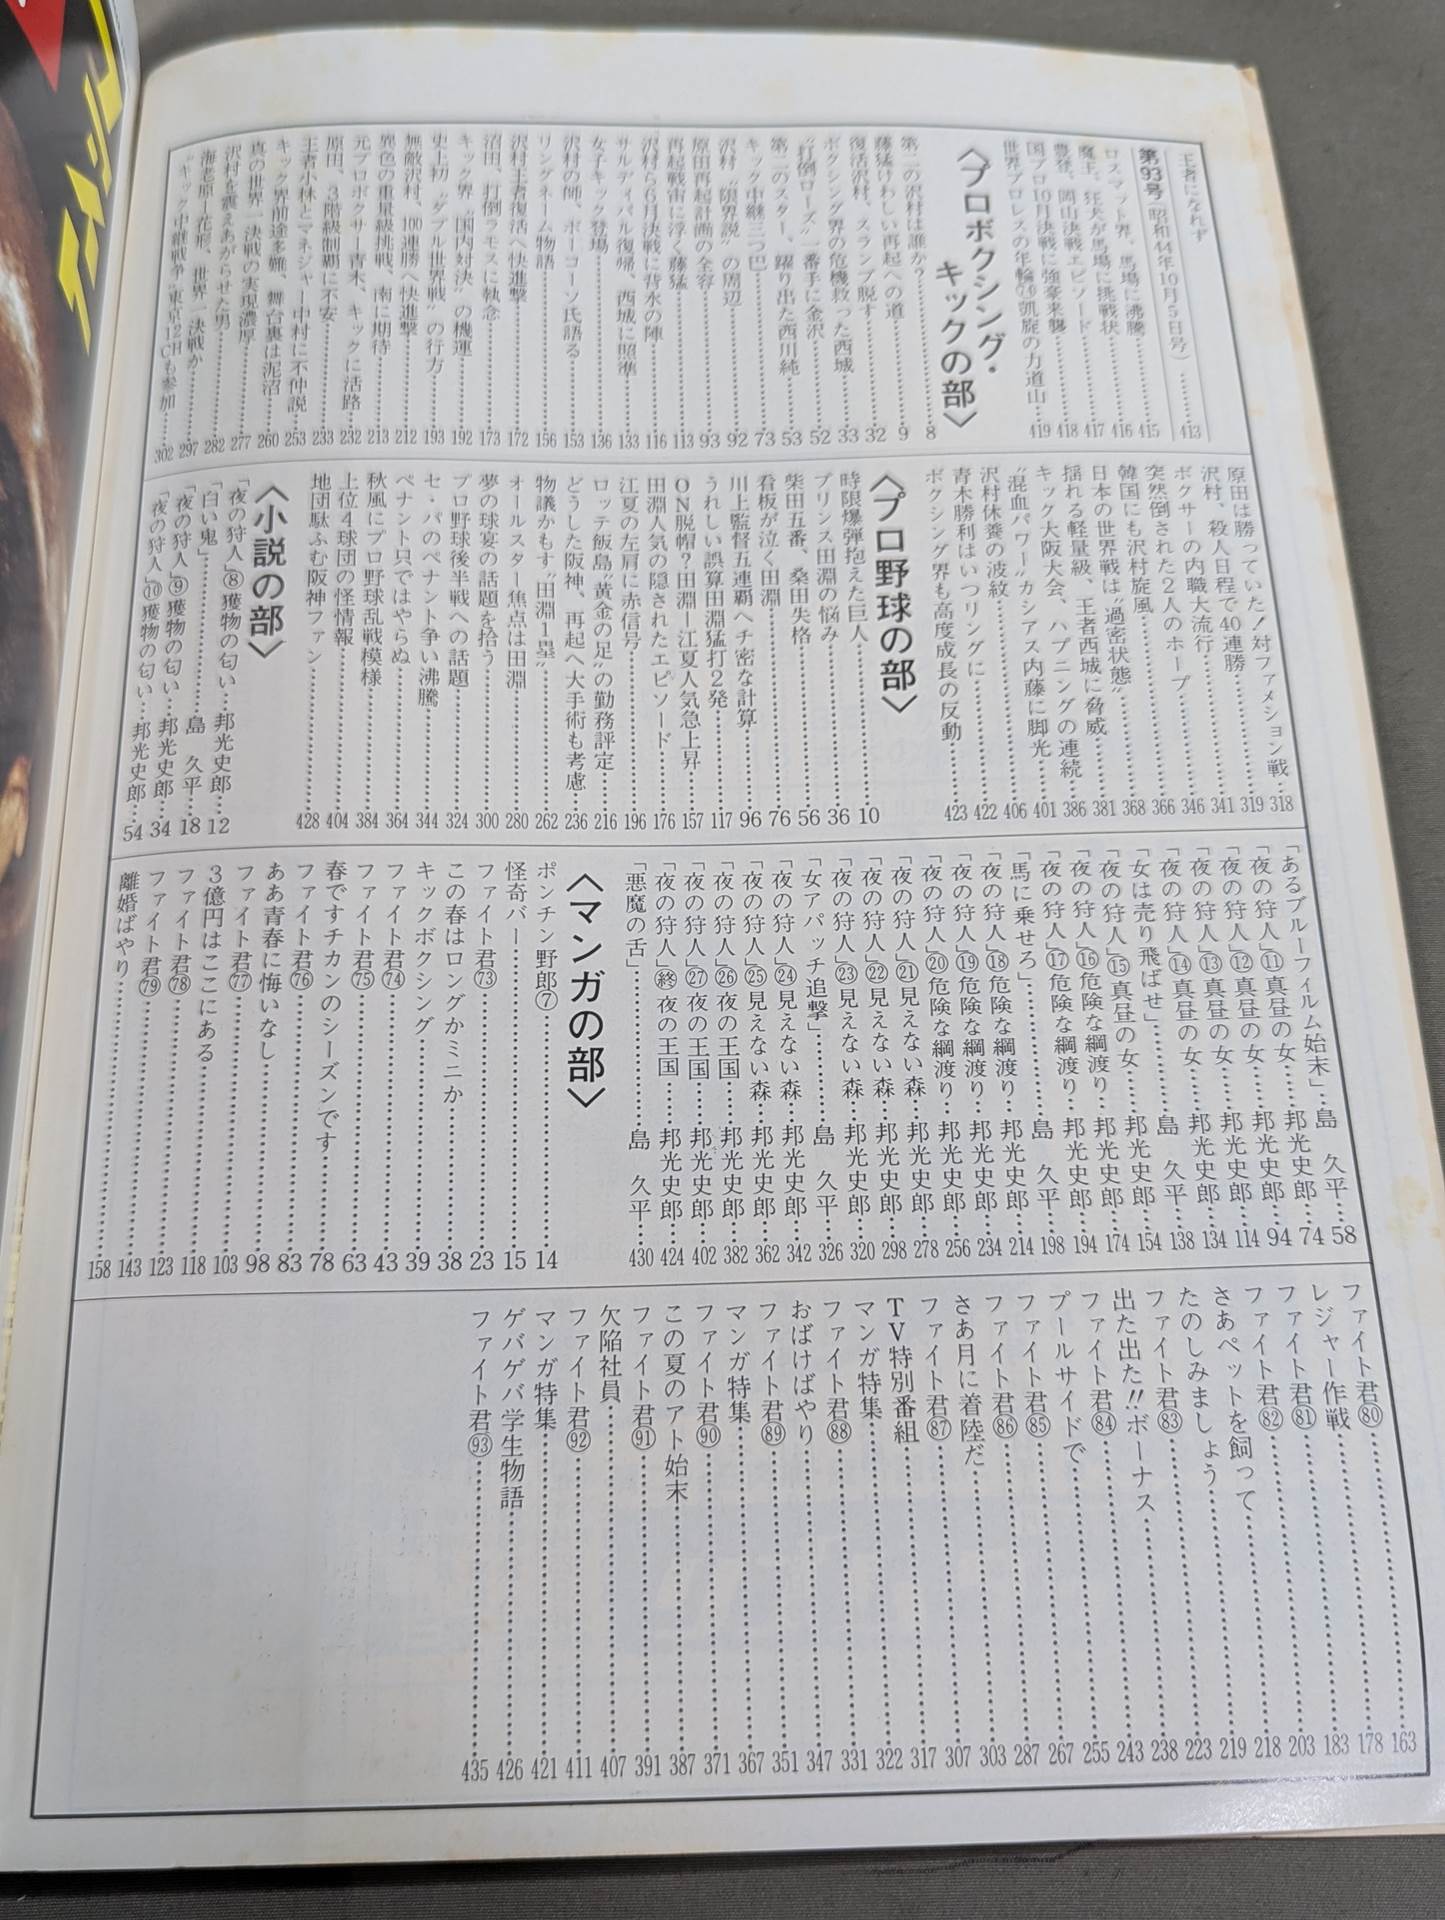 王者になれず……413
第93号(昭和44年10月5日号)
ロスマット界、馬場に沸騰……415
魔王、狂犬が馬場に挑戦状……416
豊登、岡山決戦エピソード……417
国プロ10月決戦に強豪来襲……418
世界プロレスの年輪㉔凱旋の力道山……419
〈プロボクシング・
キックの部〉
第二の沢村は誰か?……8
藤猛けわしい再起への道……9
復活沢村、スランプ脱す……32
ボクシング界の危機救った西城……33
“打倒ローズ”一番手に金沢……52
第二のスター、躍り出た西川純……53
キック中継三つ巴……73
沢村“限界説”の周辺……92
原田再起計画の全容……93
再起戦宙に浮く藤猛……113
沢村ら6月決戦に背水の陣……116
サルディバル復帰、西城に照準……133
女子キック登場……136
沢村の師、ポーコーソ氏語る……153
リングネーム物語……156
沢村王者復活へ快進撃……172
沼田、打倒ラモスに執念……173
キック界“国内対決”の機運……192
史上初“ダブル世界戦”の行方……193
無敵沢村、100連勝へ快進撃……212
異色の重量級挑戦、南に期待……213
元プロボクサー青木、キックに活路……232
原田、3階級制覇に不安……233
王者小林とマネジャー中村に不仲説……253
キック界前途多難、舞台裏は泥沼……260
真の世界一決戦の実現濃厚……277
沢村を震えあがらせた男……282
海老原―花形、世界一決戦か……297
“キック中継戦争”東京12CHも参加……302
原田は勝っていた!対ファメション戦……318
沢村、殺人日程で40連勝……319
ボクサーの内職大流行……341
突然倒された2人のホープ……346
韓国にも沢村旋風……366
日本の世界戦は“過密状態”……368
揺れる軽量級、王者西城に脅威……381
キック大阪大会、ハプニングの連続……386
“混血パワー”カシアス内藤に脚光……401
沢村休養の波紋……406
青木勝利はいつリングに……422
ボクシング界も高度成長の反動……423
〈プロ野球の部〉
時限爆弾抱えた巨人……10
プリンス田淵の悩み……36
柴田五番、桑田失格……56
看板が泣く田淵……76
川上監督五連覇へチ密な計算……96
うれしい誤算田淵猛打2発……117
ON脱帽?田淵―江夏人気急上昇……157
田淵人気の隠されたエピソード……176
江夏の左肩に赤信号……196
ロッテ飯島“黄金の足”の勤務評定……216
どうした阪神、再起へ大手術も考慮……236
物議かもす“田淵1塁”……262
オールスター焦点は田淵……280
夢の球宴の話題を拾う……300
プロ野球後半戦への話題……324
セ・パのペナント争い沸騰……344
ペナント只ではやらぬ……364
秋風にプロ野球乱戦模様……384
上位4球団の怪情報……404
地団駄ふむ阪神ファン……428
〈小説の部〉
「夜の狩人」⑧獲物の匂い…邦光史郎…12
「白い鬼」……島 久平…18
「夜の狩人」⑨獲物の匂い…邦光史郎…34
「夜の狩人」⑩獲物の匂い…邦光史郎…54
「あるブルーフィルム始末」…島 久平…58
「夜の狩人」⑪真昼の女…邦光史郎…74
「夜の狩人」⑫真昼の女…邦光史郎…94
「夜の狩人」⑬真昼の女…邦光史郎…114
「夜の狩人」⑭真昼の女…邦光史郎…134
「女は売り飛ばせ」……島 久平…138
「夜の狩人」⑮真昼の女…邦光史郎…154
「夜の狩人」⑯危険な綱渡り…邦光史郎…174
「夜の狩人」⑰危険な綱渡り…邦光史郎…194
「馬に乗せろ」……島 久平…198
「夜の狩人」⑱危険な綱渡り…邦光史郎…214
「夜の狩人」⑲危険な綱渡り…邦光史郎…234
「夜の狩人」⑳危険な綱渡り…邦光史郎…256
「夜の狩人」㉑見えない森…邦光史郎…278
「夜の狩人」㉒見えない森…邦光史郎…298
「夜の狩人」㉓見えない森…邦光史郎…320
「女アパッチ追撃」……島 久平…326
「夜の狩人」㉔見えない森…邦光史郎…342
「夜の狩人」㉕見えない森…邦光史郎…362
「夜の狩人」㉖夜の王国…邦光史郎…382
「夜の狩人」㉗夜の王国…邦光史郎…402
「夜の狩人」㊡夜の王国…邦光史郎…424
「悪魔の舌」……島 久平…430
〈マンガの部〉
ポンチン野郎⑦……14
怪奇バー……15
ファイト君73……23
この春はロングかミニか……38
キックボクシング……39
ファイト君74……43
ファイト君75……63
春ですチカンのシーズンです……78
ファイト君76……83
ああ青春に悔いなし……98
ファイト君77……103
3億円はここにある……118
ファイト君78……123
ファイト君79……143
離婚ばやり……158
ファイト君80……163
レジャー作戦……178
ファイト君81……183
ファイト君82……203
さあペットを飼って……218
たのしみましょう……219
ファイト君83……223
出た出た!!ボーナス……238
ファイト君84……243
プールサイドで……255
ファイト君85……267
ファイト君86……287
さあ月に着陸だ……303
ファイト君87……307
TV特別番組……317
マンガ特集……322
ファイト君88……331
おばけばやり……347
ファイト君89……351
マンガ特集……367
ファイト君90……371
この夏のアト始末……387
ファイト君91……391
欠陥社員……407
ファイト君92……411
マンガ特集……421
ゲバゲバ学生物語……426
ファイト君93……435